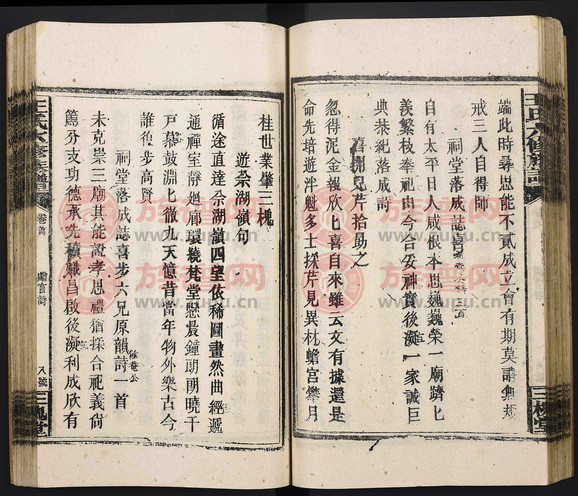 端此時尋思能不貳成立會有期莫講無頗
戒三人自得師
祠堂落成誌喜
自有太平日人咸報本思巍巍榮一廟躋七
羨繁枝奉祀由今合安神賁後凝一家誠巨
典恭紀落成詩
喜棚兄芹拾勗之
忽得泥金報欣七喜自來雖云文有據還是
命先培遊泮魁多士採芹見異材蟾宮攀月
王氏六修族譜
三槐堂
桂世業肇三槐
遊佘湖嶺句
循途直達佘湖嶺四望依稀圖畫然曲經遞
通禪室靜迴廊環繞梵堂懸晨鐘助開曉千
戸暮鼓淵七徹九天憶昔當年物外樂古今
誰後步高賢
祠堂落成誌喜步六兄原韻詩一首
修巷公
未克崇三廟其能說孝思禮猶採合祀義尚
篤分支功德承先積熾昌啟後凝利成欣有
王氏六修族譜
卷首
八號
三槐堂
族譜网
www.zupu.cn